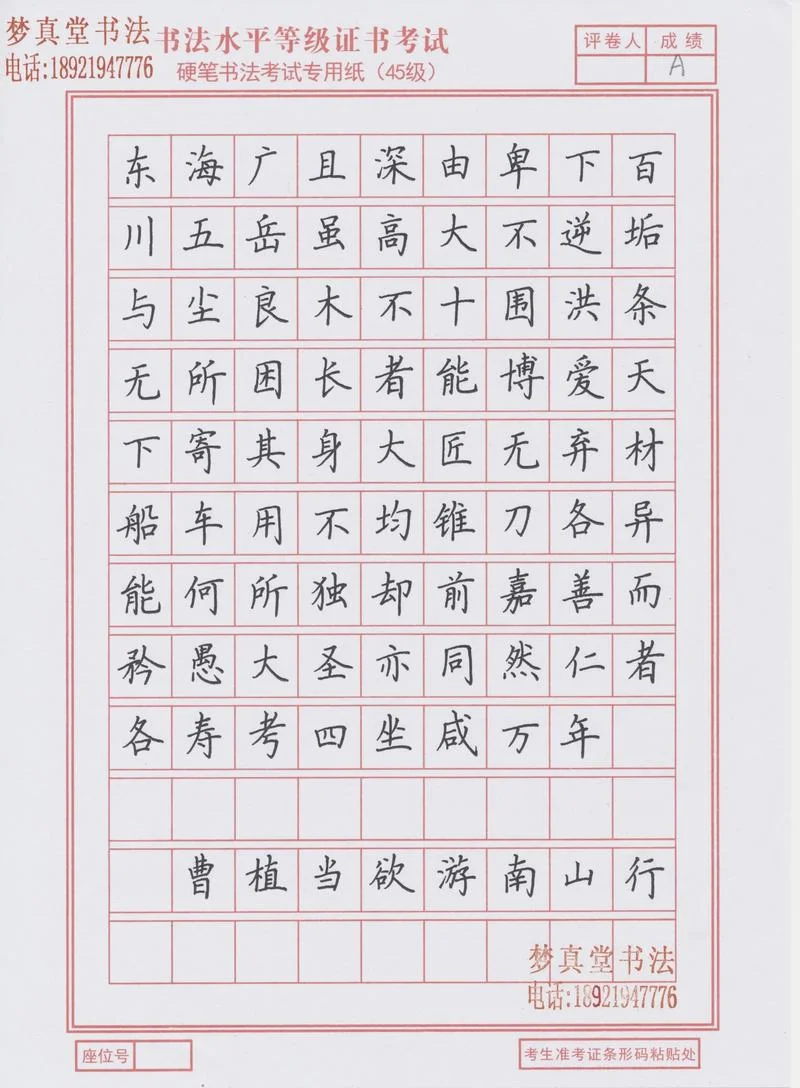 梦真堂书法
电话:18921947776
书法水平等级证书考试
硬笔书法考试专用纸（45级）
评卷人 成绩
A
东海广且深由卑下百
川五岳虽高大不逆垢
与尘良木不十围洪条
无所困长者能博爱天
下寄其身大匠无弃材
船车用不均锥刀各异
能何所独却前嘉善而
矜愚大圣亦同然仁者
各寿考四坐咸万年
曹植当欲游南山行
梦真堂书法
电话:18921947776
座位号
考生准考证条形码粘贴处